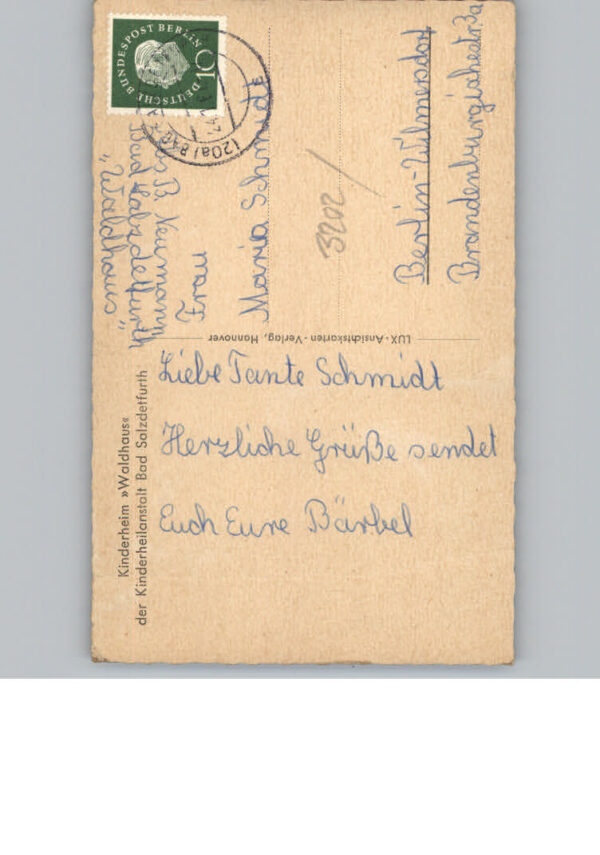 Kinderheim »Waldhaus«
der Kinderheilanstalt Bad Salzdetfurth
Liebe Tante Schmidt
Herzliche Grüße sendet
Euch Eure Bärbel
LUX-Ansichtskarten-Verlag, Hannover
DEUTSCHE BUNDESPOST BERLIN
10
(20a) BAD
Neumann
Bad Salzdetfurth
„Waldhaus"
Frau
Maria Schmidt
3202
Berlin-Wilmersdorf
Brandenburgischestr